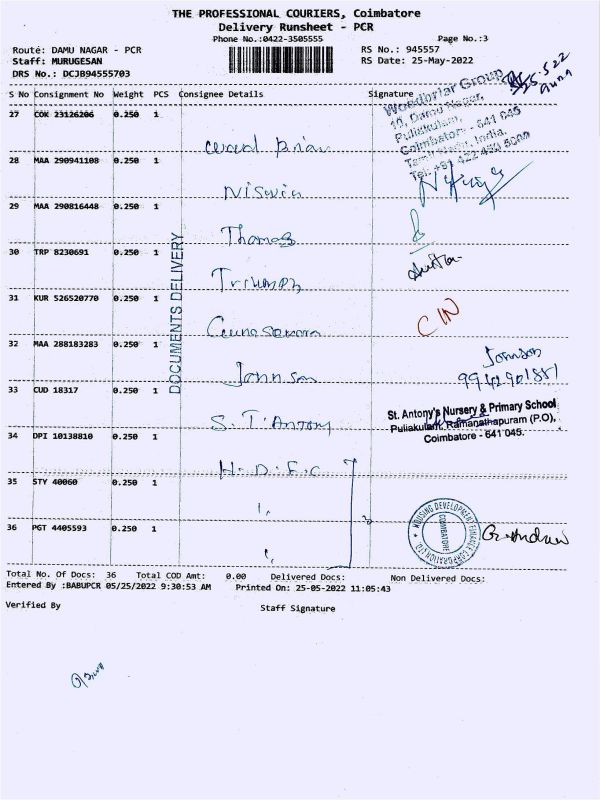 THE PROFESSIONAL COURIERS, Coimbatore
Delivery Runsheet - PCR
Phone No.:0422-3505555
Page No.:3
Route: DAMU NAGAR - PCR
RS No.: 945557
Staff: MURUGESAN
RS Date: 25-May-2022
DRS No.: DCJB94555703
25.5.22
S No Consignment No Weight PCS Consignee Details Signature
Woodbriar Group
10, Damu Nagar,
Puliakulam,
Coimbatore - 641 045
Tamil Nadu, India.
27 COK 23126206 0.250 1
28 MAA 290941108 0.250 1
29 MAA 290816448 0.250 1
Thomas
30 TRP 8230691 0.250 1
Triumph
31 KUR 526520770 0.250 1
CIN
Gunasekara
32 MAA 288183283 0.250 1
Johnson
Johnson
9942901881
33 CUD 18317 0.250 1
S. T. Antony
St. Antony's Nursery & Primary School
Puliakulam, Ramanathapuram (P.O),
Coimbatore - 641 045.
34 DPI 10138810 0.250 1
H.D.F.C
35 STY 40060 0.250 1
36 PGT 4405593 0.250 1
3
HOUSING DEVELOPMENT FINANCE CORPORATION LTD.
COIMBATORE
G. Andrew
DOCUMENTS DELIVERY
Total No. Of Docs: 36 Total COD Amt: 0.00 Delivered Docs: Non Delivered Docs:
Entered By :BABUPCR 05/25/2022 9:30:53 AM Printed On: 25-05-2022 11:05:43
Verified By Staff Signature